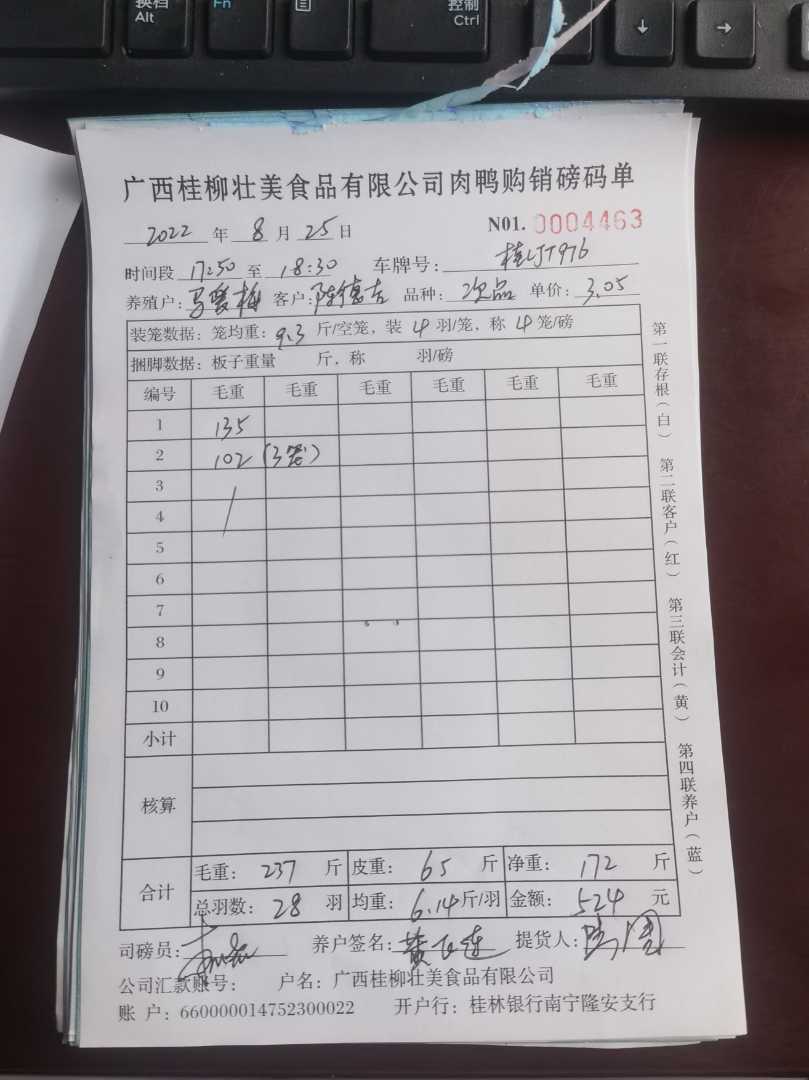 换档
Alt
Fn
控制
Ctrl
↓
→
广西桂柳壮美食品有限公司肉鸭购销磅码单
2022 年 8 月 25 日 N01. 0004463
时间段 17:50 至 18:30 车牌号: 桂LJT976
养殖户: 客户: 陈德吉 品种: 次品 单价: 3.05
装笼数据: 笼均重: 9.3 斤/空笼, 装 4 羽/笼, 称 4 笼/磅
捆脚数据: 板子重量 斤, 称 羽/磅
编号 毛重 毛重 毛重 毛重 毛重 毛重
1 135
2 102 (3笼)
3
4
5
6
7
8
9
10
小计
核算
合计 毛重: 237 斤 皮重: 65 斤 净重: 172 斤
总羽数: 28 羽 均重: 6.14 斤/羽 金额: 524 元
司磅员: 养户签名: 提货人:
公司汇款账号: 户名: 广西桂柳壮美食品有限公司
账 户: 660000014752300022 开户行: 桂林银行南宁隆安支行
第一联存根(白) 第二联客户(红) 第三联会计(黄) 第四联养户(蓝)